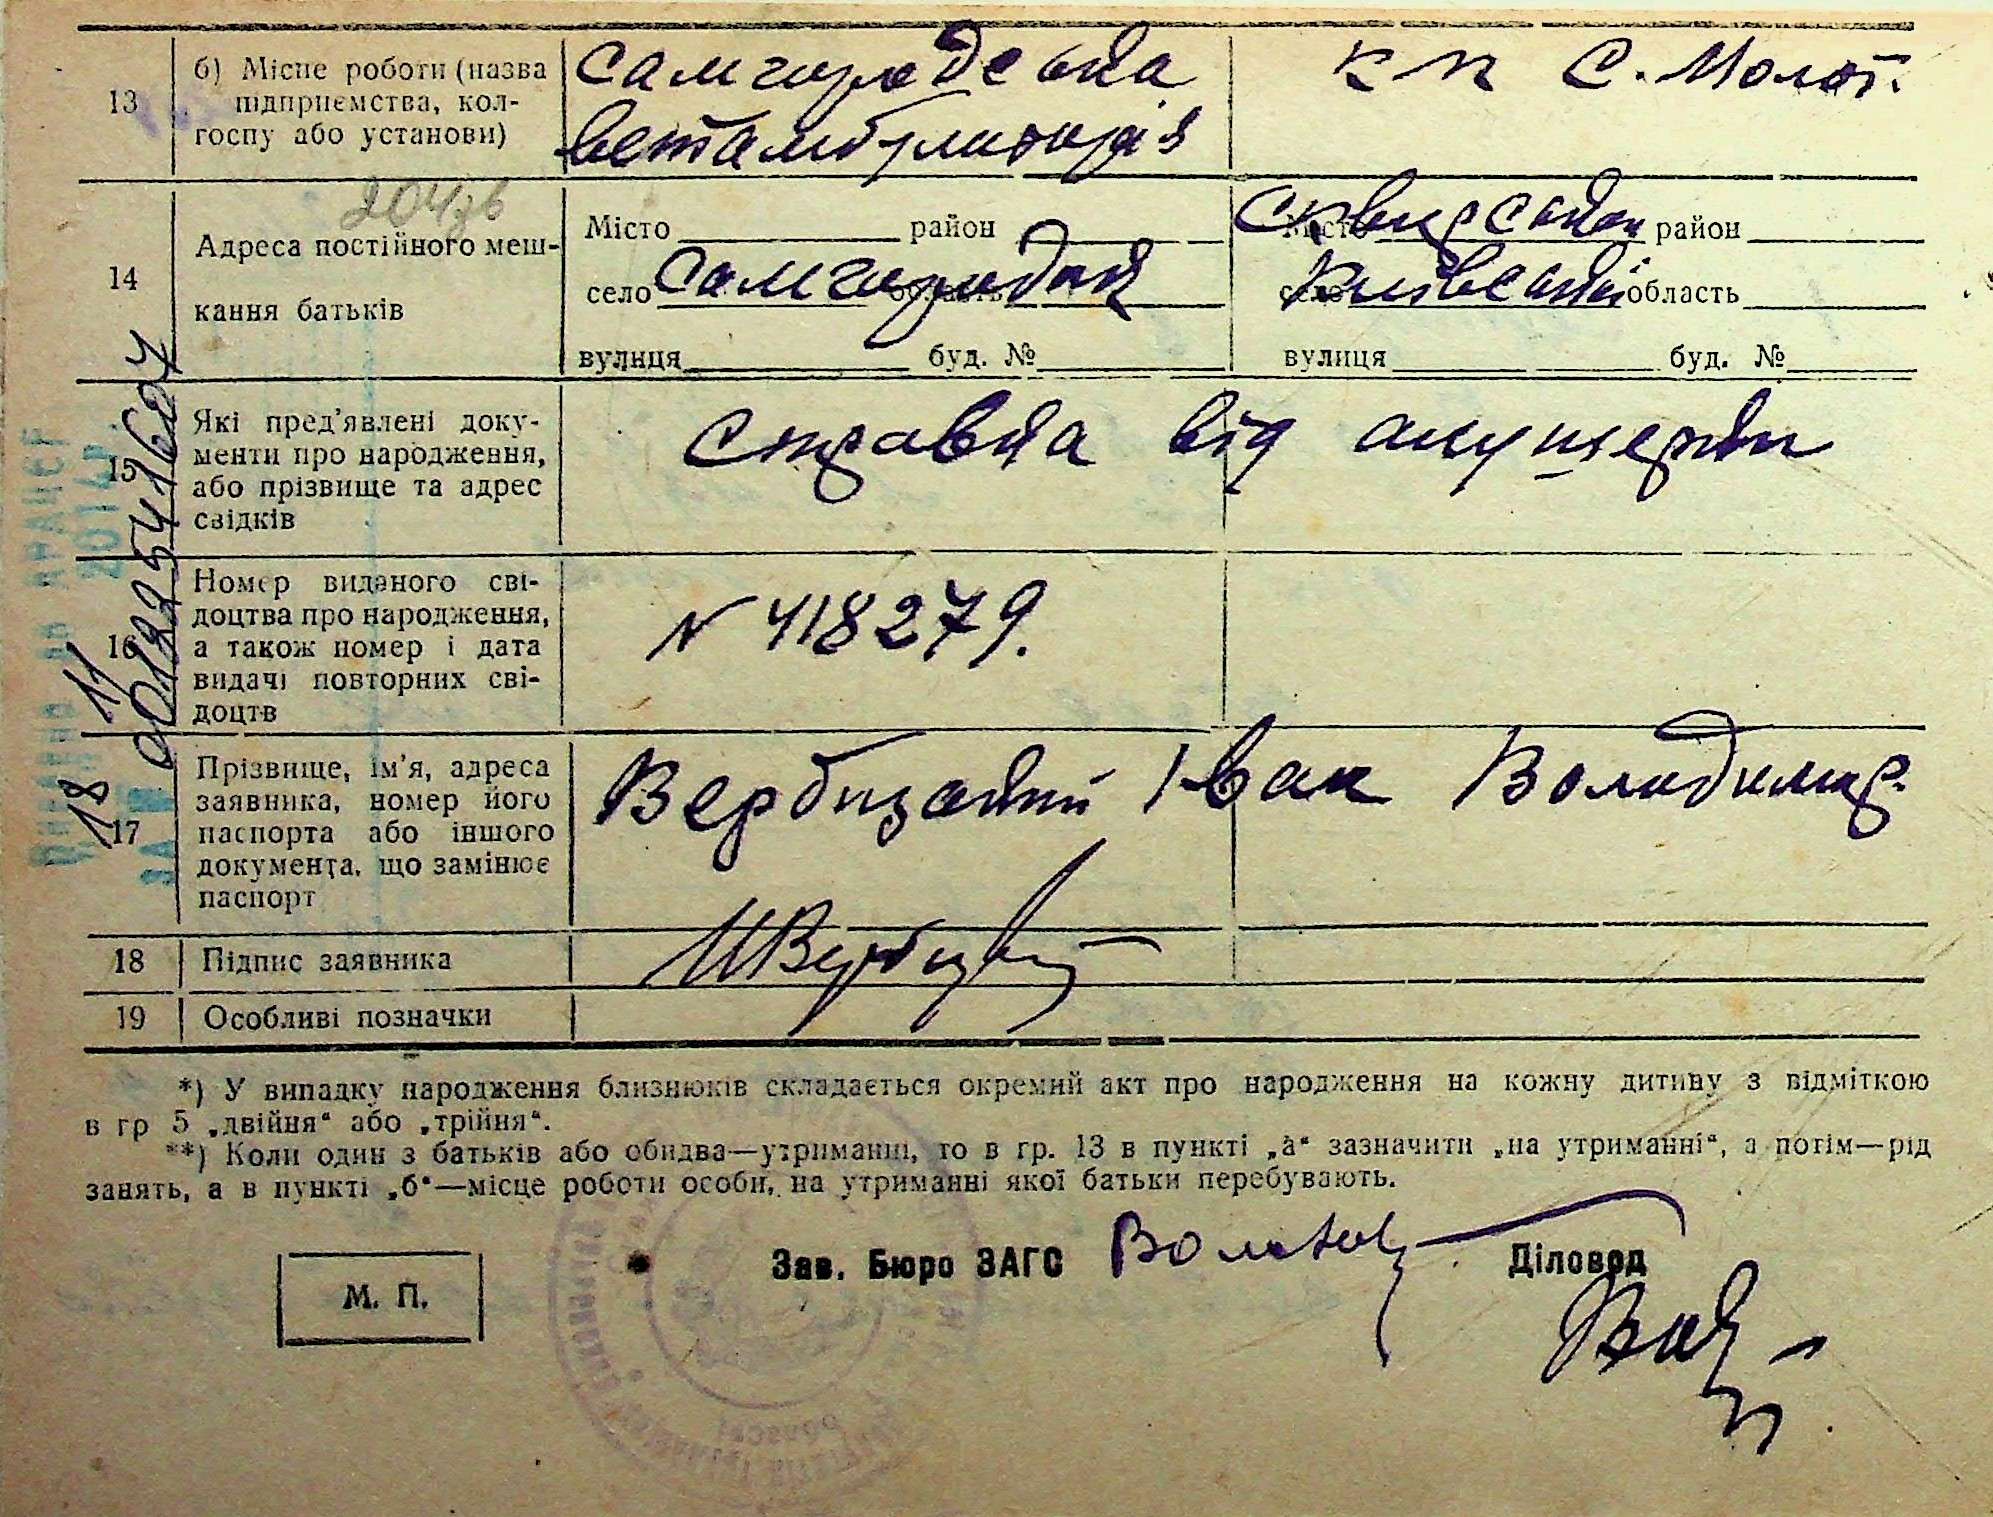 13 б) Місце роботи (назва підприємства, колгоспу або установи)
Самгородська ветамбулаторія
КП С. Молот.
204зв
14 Адреса постійного мешкання батьків
Місто район
село Самгородок область
вулиця буд. №
Місто Сквирський район
село Київській область
вулиця буд. №
15 Які пред'явлені документи про народження, або прізвище та адрес свідків
Справка від акушерки
16 Номер виданого свідоцтва про народження, а також номер і дата видачі повторних свідоцтв
N 418279.
17 Прізвище, ім'я, адреса заявника, номер його паспорта або іншого документа, що замінює паспорт
Вербицький Іван Володимир.
18 Підпис заявника
ИВербицкий
19 Особливі позначки
*) У випадку народження близнюків складається окремий акт про народження на кожну дитину з відміткою
в гр 5 „двійня“ або „трійня“.
**) Коли один з батьків або обидва—утриманці, то в гр. 13 в пункті „а“ зазначити „на утриманні“, а потім—рід
занять, а в пункті „б“—місце роботи особи, на утриманні якої батьки перебувають.
Зав. Бюро ЗАГС
Діловод
М. П.